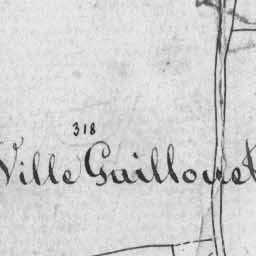 318
Ville Guillouet